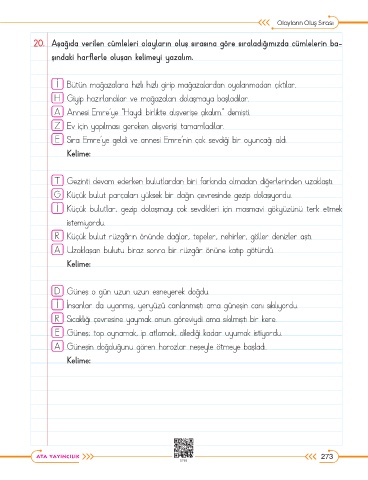 Olayların Oluş Sırası
20. Aşağıda verilen cümleleri olayların oluş sırasına göre sıraladığımızda cümlelerin ba-
şındaki harflerle oluşan kelimeyi yazalım.
İ Bütün mağazalara hızlı hızlı girip mağazalardan oyalanmadan çıktılar.
H Giyip hazırlandılar ve mağazaları dolaşmaya başladılar.
A Annesi Emre'ye "Haydi birlikte alışverişe çıkalım." demişti.
Z Ev için yapılması gereken alışverişi tamamladılar.
E Sıra Emre'ye geldi ve annesi Emre'nin çok sevdiği bir oyuncağı aldı.
Kelime:
T Gezinti devam ederken bulutlardan biri farkında olmadan diğerlerinden uzaklaştı.
G Küçük bulut parçaları yüksek bir dağın çevresinde gezip dolaşıyordu.
İ Küçük bulutlar, gezip dolaşmayı çok sevdikleri için masmavi gökyüzünü terk etmek
istemiyordu.
R Küçük bulut rüzgârın önünde dağlar, tepeler, nehirler, göller denizler aştı.
A Uzaklaşan bulutu biraz sonra bir rüzgâr önüne katıp götürdü.
Kelime:
D Güneş o gün uzun uzun esneyerek doğdu.
İ İnsanlar da uyanmış, yeryüzü canlanmıştı ama güneşin canı sıkılıyordu.
R Sıcaklığı çevresine yaymak onun göreviydi ama sıkılmıştı bir kere.
E Güneş; top oynamak, ip atlamak, dilediği kadar uyumak istiyordu.
A Güneşin doğduğunu gören horozlar neşeyle ötmeye başladı.
Kelime:
ATA YAYINCILIK
273